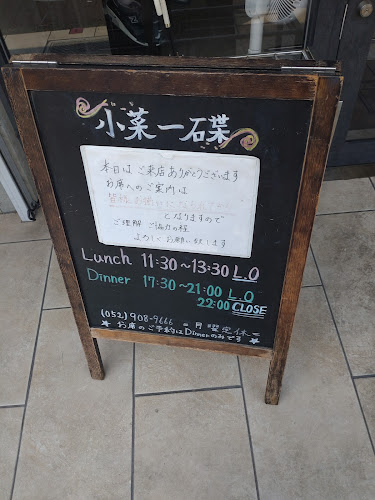 小菜一碟
本日は ご来店ありがとうございます
お席へのご案内は
皆様お揃いになられて
となりますので
ご理解 ご協力の程
よろしくお願い致します
Lunch 11:30~13:30 L.O
Dinner 17:30~21:00 L.O
22:00 CLOSE
(052) 908-9666 定休
★ お席のご予約はDinnerのみです ★